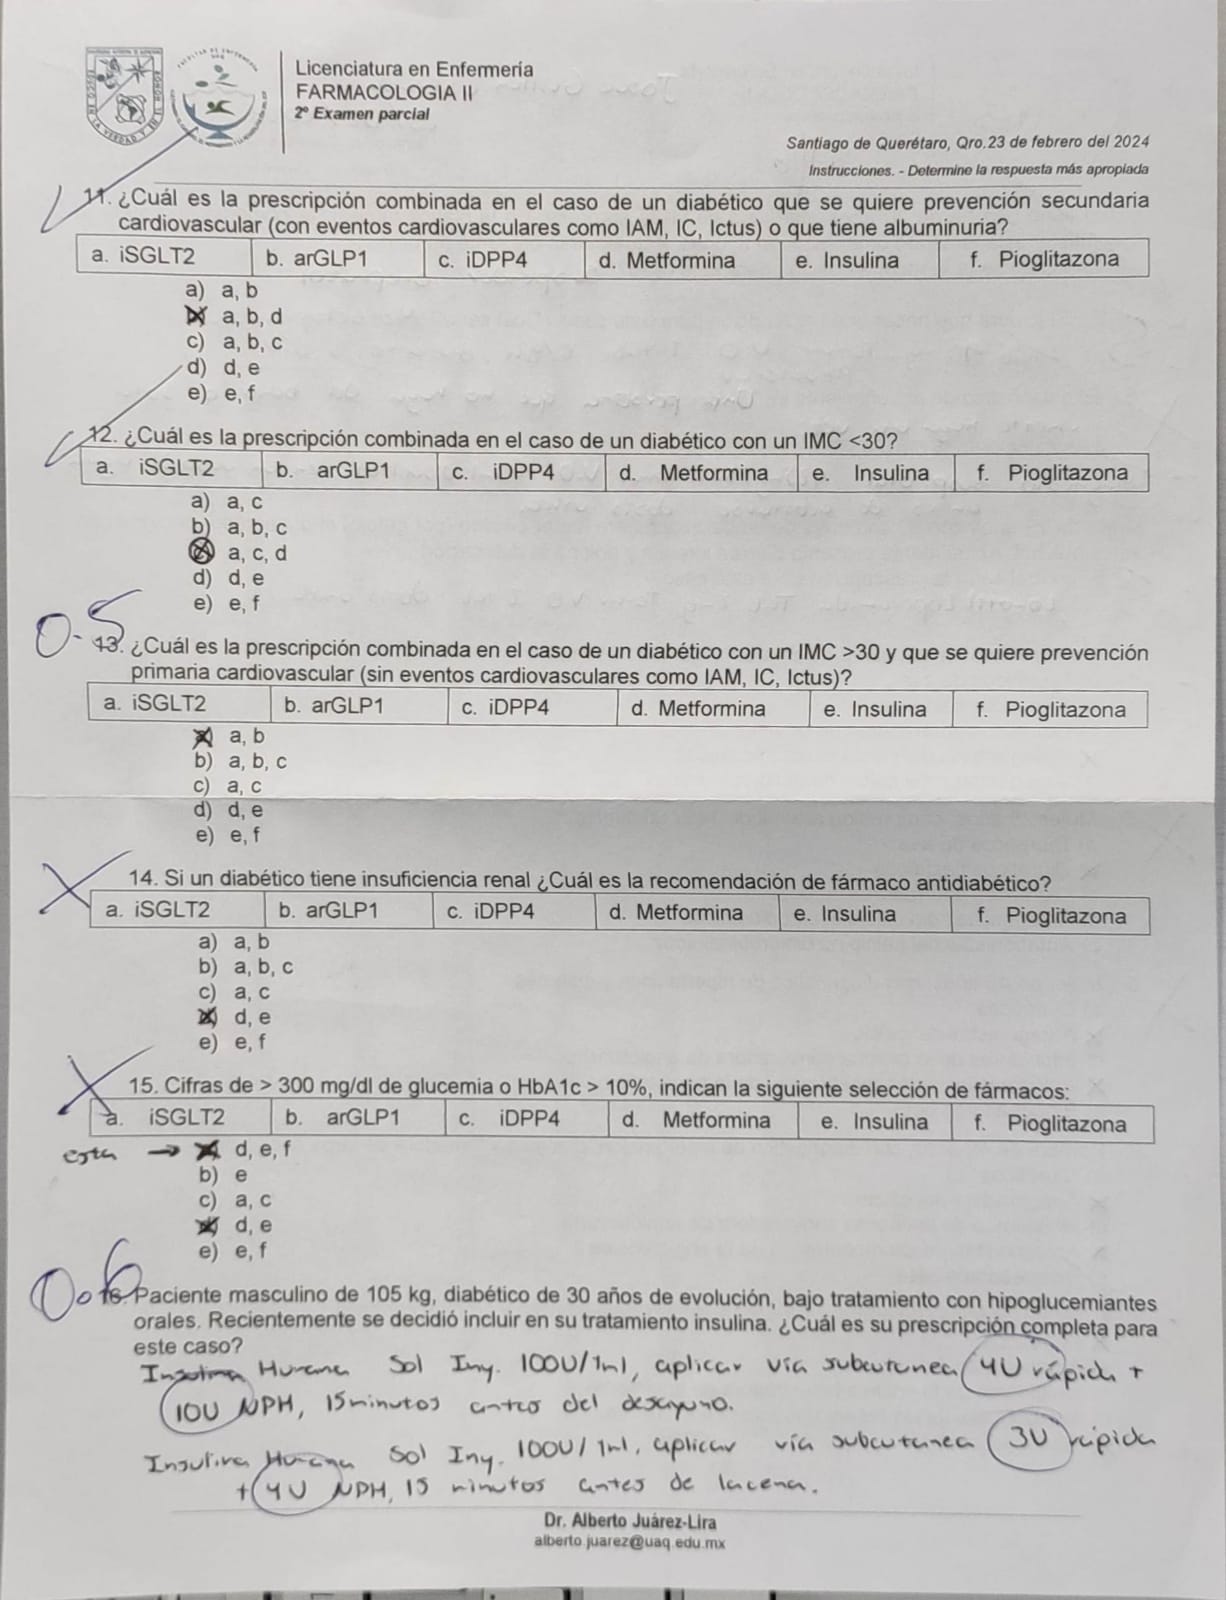 Licenciatura en Enfermería
FARMACOLOGIA II
2° Examen parcial
Santiago de Querétaro, Qro.23 de febrero del 2024
Instrucciones. - Determine la respuesta más apropiada
11. ¿Cuál es la prescripción combinada en el caso de un diabético que se quiere prevención secundaria
cardiovascular (con eventos cardiovasculares como IAM, IC, Ictus) o que tiene albuminuria?
a. iSGLT2 b. arGLP1 c. iDPP4 d. Metformina e. Insulina f. Pioglitazona
a) a, b
b) a, b, d
c) a, b, c
d) d, e
e) e, f
12. ¿Cuál es la prescripción combinada en el caso de un diabético con un IMC <30?
a. iSGLT2 b. arGLP1 c. iDPP4 d. Metformina e. Insulina f. Pioglitazona
a) a, c
b) a, b, c
c) a, c, d
d) d, e
e) e, f
0.5
13. ¿Cuál es la prescripción combinada en el caso de un diabético con un IMC >30 y que se quiere prevención
primaria cardiovascular (sin eventos cardiovasculares como IAM, IC, Ictus)?
a. iSGLT2 b. arGLP1 c. iDPP4 d. Metformina e. Insulina f. Pioglitazona
a) a, b
b) a, b, c
c) a, c
d) d, e
e) e, f
14. Si un diabético tiene insuficiencia renal ¿Cuál es la recomendación de fármaco antidiabético?
a. iSGLT2 b. arGLP1 c. iDPP4 d. Metformina e. Insulina f. Pioglitazona
a) a, b
b) a, b, c
c) a, c
d) d, e
e) e, f
15. Cifras de > 300 mg/dl de glucemia o HbA1c > 10%, indican la siguiente selección de fármacos:
a. iSGLT2 b. arGLP1 c. iDPP4 d. Metformina e. Insulina f. Pioglitazona
esta → a) d, e, f
b) e
c) a, c
d) d, e
e) e, f
0.6
16. Paciente masculino de 105 kg, diabético de 30 años de evolución, bajo tratamiento con hipoglucemiantes
orales. Recientemente se decidió incluir en su tratamiento insulina. ¿Cuál es su prescripción completa para
este caso?
Insulina Humana Sol Iny. 100U/1ml, aplicar vía subcutanea 4U rápida +
10U NPH, 15 minutos antes del desayuno.
Insulina Humana Sol Iny. 100U/1ml, aplicar vía subcutanea 3U rápida
+ 4U NPH, 15 minutos antes de la cena.
Dr. Alberto Juárez-Lira
alberto.juarez@uaq.edu.mx